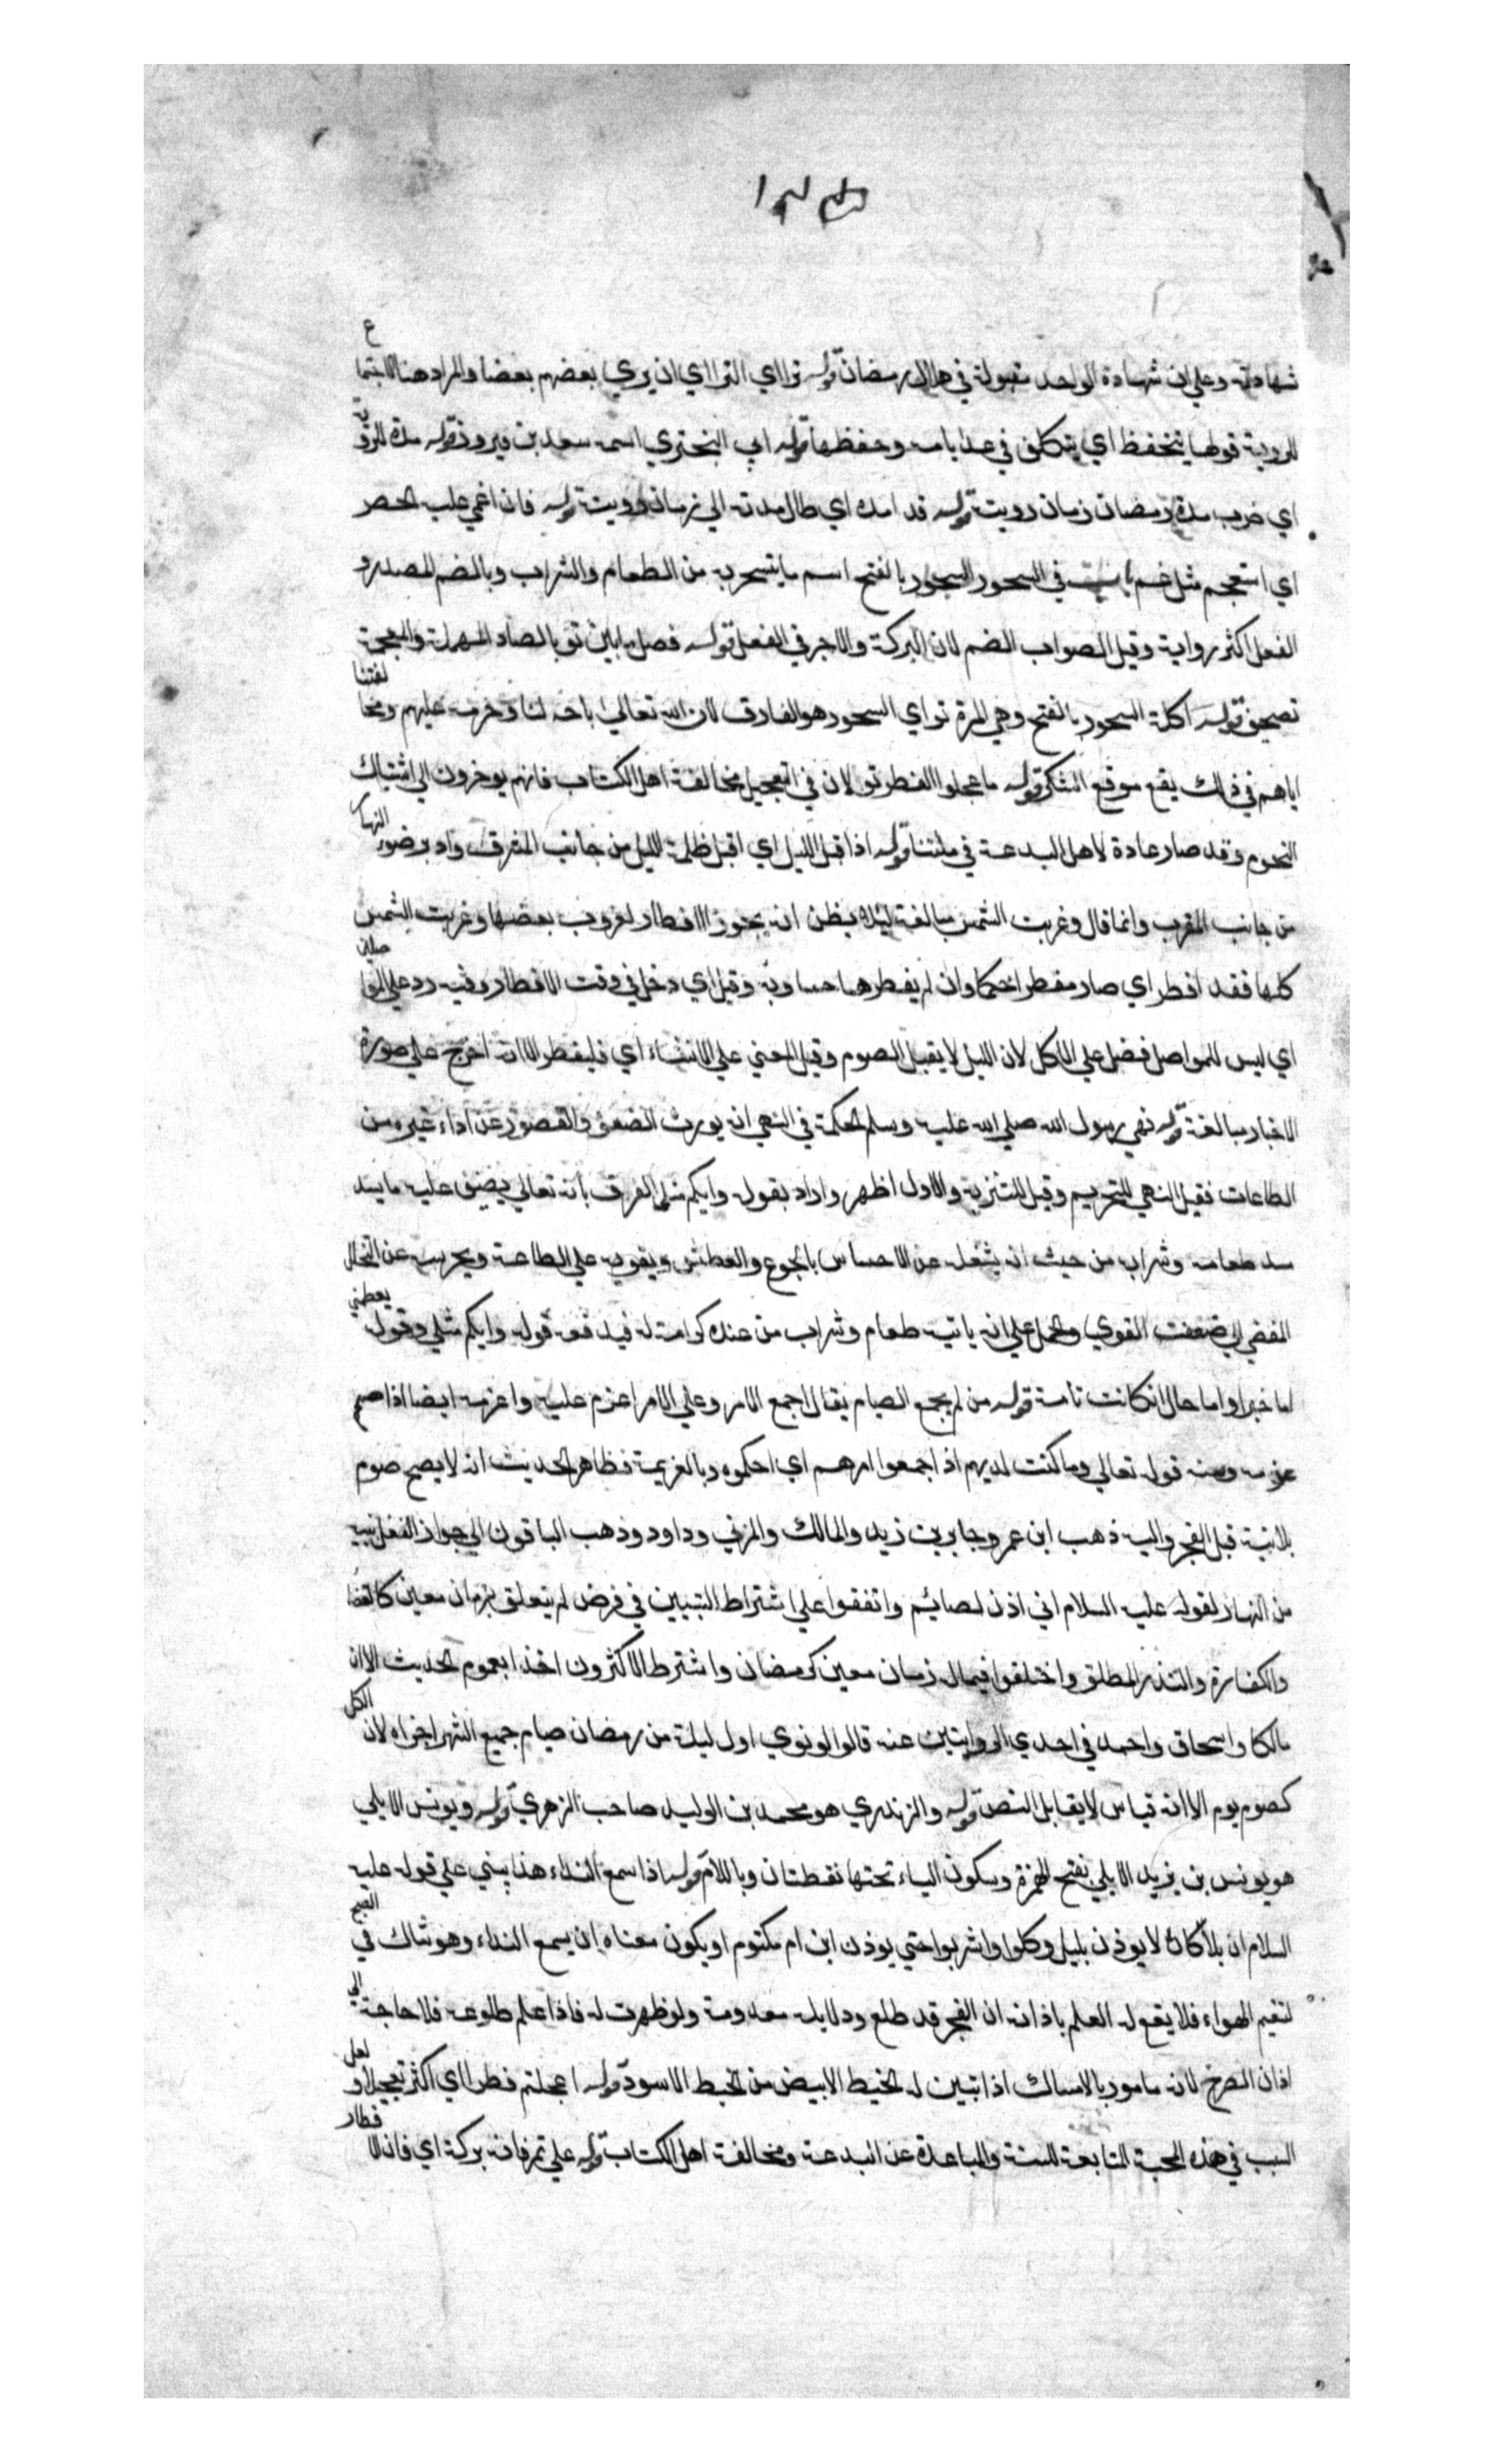 شهادته وعلي ان شهادة الواحد مقبولة في هلال رمضان قوله تراآي الترااي ان يري بعضهم بعضا والمراد هنا الاجتماع
للروية قولها يتحفظ اي يتكلف في عد ايامه وحفظها قوله ابي البختري اسمه سعد بن فيروز قوله مده للروية
اي ضرب مدة رمضان زمان رويته قوله قد امده اي طال مدته الي زمان رويته قوله فان اغمي عليه الحصر
اي استعجم مثل غم باب في السحور السحور بالفتح اسم ما يتسحر به من الطعام والشراب وبالضم المصدر و
الفعل اكثر رواية وقيل الصواب الضم لان البركة والاجر في الفعل قوله فصل ما بين تو بالصاد المهملة والمعجمة
تصحيف قوله اكلة السحور بالفتح وهي المرة تو اي السحور هو الفارق لان الله تعالي اباحه لنا وحرمه عليهم ومخالفتنا
اياهم في ذلك يقع موقع الشكر قوله ما عجلوا الفطر تو لان في التعجيل مخالفة اهل الكتاب فانهم يوخرون الي اشتباك
النجوم وقد صار عادة لاهل البدعة في ملتنا قوله اذا اقبل الليل اي اقبل ظلمة الليل من جانب المشرق وادبر ضوء النهار
من جانب المغرب وانما قال وغربت الشمس مبالغة ليلا يظن انه يجوز الافطار لغروب بعضها وغربت الشمس
كلها فقد افطر اي صار مفطرا حكما وان لم يفطر وقيل اي دخل في وقت الافطار وفيه رد علي المواصلين
اي ليس للمواصل فضل علي الاكل لان الليل لا يقبل الصوم وقيل المعني علي الانشاء اي فليفطر الا انه اخرج علي صورة
الاخبار مبالغة قوله نهي رسول الله صلي الله عليه وسلم الحكمة في النهي انه يورث الضعف والقصور عن اداء غيره من
الطاعات فقيل النهي للتحريم وقيل للتنزيه والاول اظهر واراد بقوله وايكم مثلي الفرق بانه تعالي يفيض عليه ما يسد
مسد طعامه وشرابه من حيث انه يشغله عن الاحساس بالجوع والعطش ويقويه علي الطاعة ويحرسه عن التحلل
المفضي الي ضعف القوي والحمل علي انه ياتيه طعام وشراب من عنده كرامة له فيدفعه قوله وايكم مثلي وقوله يطعمني
اما خبر او اما حال ان كانت تامة قوله من لم يجمع الصيام يقال اجمع الامر وعلي الامر اعزم عليه واعزمه ايضا اذا صمم
عزمه ومنه قوله تعالي وما كنت لديهم اذ اجمعوا امرهم اي احكموه بالعزيمة فظاهر الحديث انه لا يصح صوم
بلا نية قبل الفجر واليه ذهب ابن عمر وجابر بن زيد والمالك والمزني وداود وذهب الباقون الي جواز النفل بنية
من النهار لقوله عليه السلام اني اذن لصائم واتفقوا علي اشتراط التبييت في فرض لم يتعلق بزمان معين كالقضاء
والكفارة والنذر المطلق واختلفوا فيما له زمان معين كرمضان واشترط الاكثرون اخذا بعموم الحديث الا ان
مالكا واسحاق واحمد في احدي الروايتين عنه قالوا لو نوي اول ليلة من رمضان صيام جميع الشهر اجزاه لان الكل
كصوم يوم الا انه قياس لا يقابل النص قوله والزبيدي هو محمد بن الوليد صاحب الزهري قوله ويونس الايلي
هو يونس بن يزيد الايلي بفتح الهمزة وسكون الياء تحتها نقطتان وباللام قوله اذا سمع النداء هذا يبني علي قوله عليه
السلام ان بلالا كان لا يوذن بليل وكلوا واشربوا حتي يوذن ابن ام مكتوم او يكون معناه ان يسمع النداء وهو شاك في الصبح
لتغيم الهواء فلا يقع له العلم باذانه ان الفجر قد طلع ودلايله معدومة ولو ظهرت له فاذا علم طلوعه فلا حاجة الي
اذان الصريح لانه مامور بالامساك اذا تبين له الخيط الابيض من الخيط الاسود قوله اعجلتم فطرا اي اكثر تعجيلا ولعل
السبب في هذه المحبة المتابعة للسنة والمباعدة عن البدعة ومخالفة اهل الكتاب قوله علي تمر فانه بركة اي فان الافطار